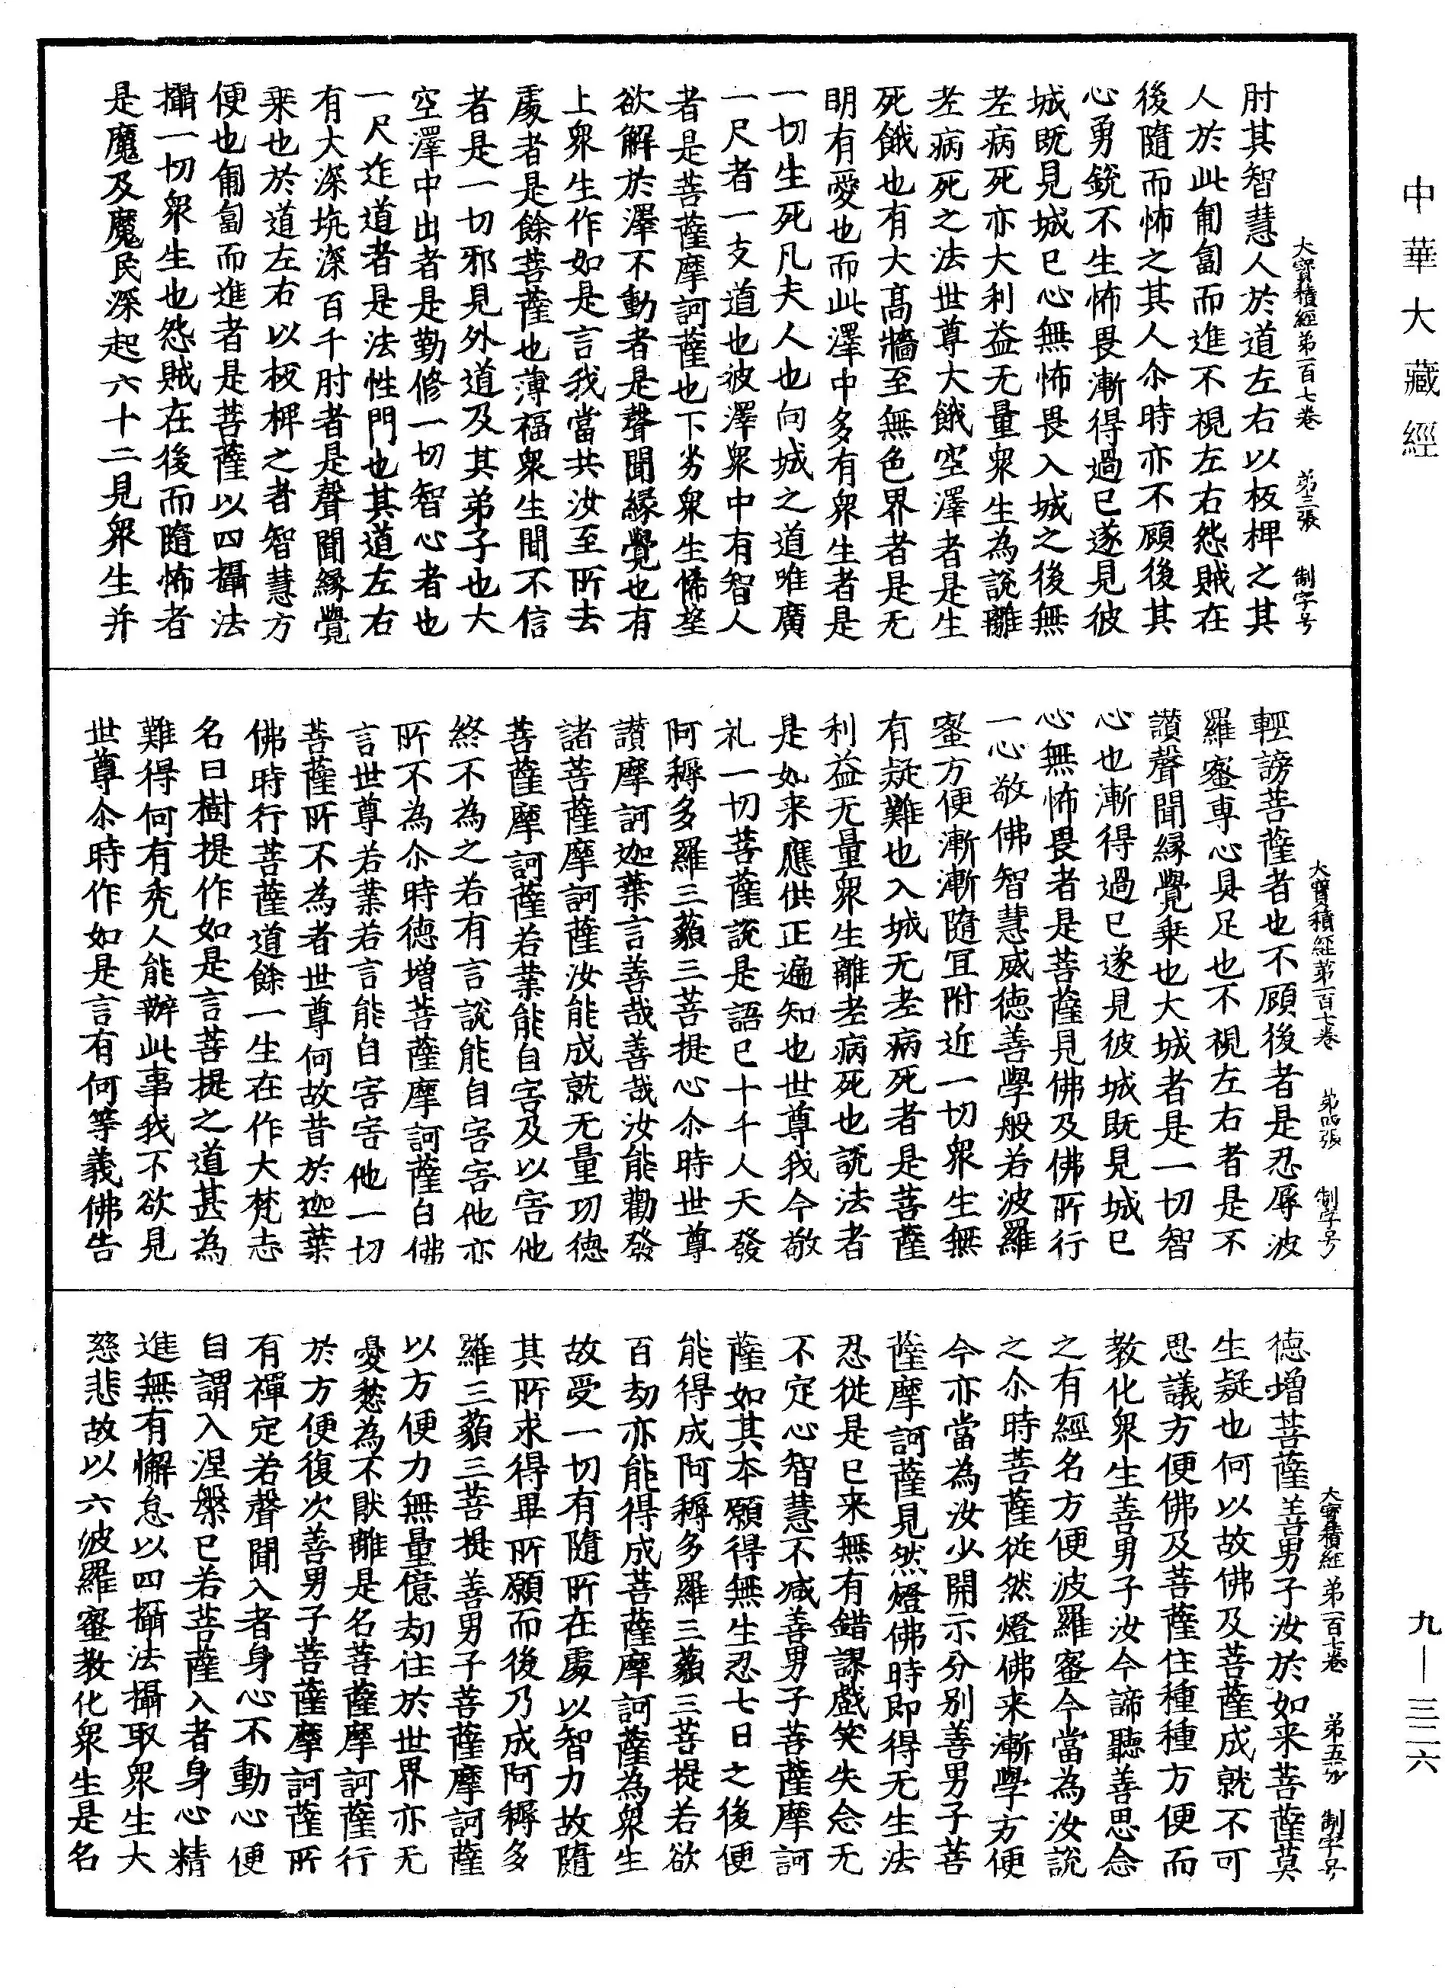 中華大藏經
大寶積經第一百七卷 第三張 制字号
肘其智慧人於道左右以板椑之其
人於此匍匐而進不視左右怨賊在
後隨而怖之其人尒時亦不顧後其
心勇銳不生怖畏漸得過已遂見彼
城既見城已心無怖畏入城之後無
老病死亦大利益无量衆生為說離
老病死之法世尊大餓空澤者是生
死餓也有大高牆至無色界者是无
明有愛也而此澤中多有衆生者是
一切生死凡夫人也向城之道唯廣
一尺者一支道也彼澤衆中有智人
者是菩薩摩訶薩也下劣衆生悕望
欲解於澤不動者是聲聞緣覺也有
上衆生作如是言我當共汝至所去
處者是餘菩薩也薄福衆生聞不信
者是一切邪見外道及其弟子也大
空澤中出者是勤修一切智心者也
一尺迮道者是法性門也其道左右
有大深坑深百千肘者是聲聞緣覺
乗也於道左右以板椑之者智慧方
便也匍匐而進者是菩薩以四攝法
攝一切衆生也怨賊在後而隨怖者
是魔及魔民深起六十二見衆生并
大寶積經第一百七卷 第四張 制字号
輕謗菩薩者也不顧後者是忍辱波
羅蜜專心具足也不視左右者是不
讃聲聞緣覺乗也大城者是一切智
心也漸得過已遂見彼城既見城已
心無怖畏者是菩薩見佛及佛所行
一心敬佛智慧威德善學般若波羅
蜜方便漸漸隨宜附近一切衆生無
有疑難也入城无老病死者是菩薩
利益无量衆生離老病死也說法者
是如来應供正遍知也世尊我今敬
礼一切菩薩說是語已十千人天發
阿耨多羅三藐三菩提心尒時世尊
讃摩訶迦葉言善哉善哉汝能勸發
諸菩薩摩訶薩汝能成就无量功德
菩薩摩訶薩若業能自害及以害他
終不為之若有言說能自害害他亦
所不為尒時德增菩薩摩訶薩白佛
言世尊若業若言能自害害他一切
菩薩所不為者世尊何故昔於迦葉
佛時行菩薩道餘一生在作大梵志
名曰樹提作如是言菩提之道甚為
難得何有禿人能辦此事我不欲見
世尊尒時作如是言有何等義佛告
大寶積經第一百七卷 第五張 制字号
德增菩薩善男子汝於如来菩薩莫
生疑也何以故佛及菩薩成就不可
思議方便佛及菩薩住種種方便而
教化衆生善男子汝今諦聽善思念
之有經名方便波羅蜜今當為汝說
之尒時菩薩從然燈佛来漸學方便
今亦當為汝少開示分别善男子菩
薩摩訶薩見然燈佛時即得无生法
忍從是已来無有錯謬戲笑失念无
不定心智慧不減善男子菩薩摩訶
薩如其本願得無生忍七日之後便
能得成阿耨多羅三藐三菩提若欲
百劫亦能得成菩薩摩訶薩為衆生
故受一切有隨所在處以智力故隨
其所求得畢所願而後乃成阿耨多
羅三藐三菩提善男子菩薩摩訶薩
以方便力無量億劫住於世界亦无
憂愁為不猒離是名菩薩摩訶薩行
於方便復次善男子菩薩摩訶薩所
有禪定若聲聞入者身心不動心便
自謂入涅槃已若菩薩入者身心精
進無有懈怠以四攝法攝取衆生大
慈悲故以六波羅蜜教化衆生是名
九—三二六